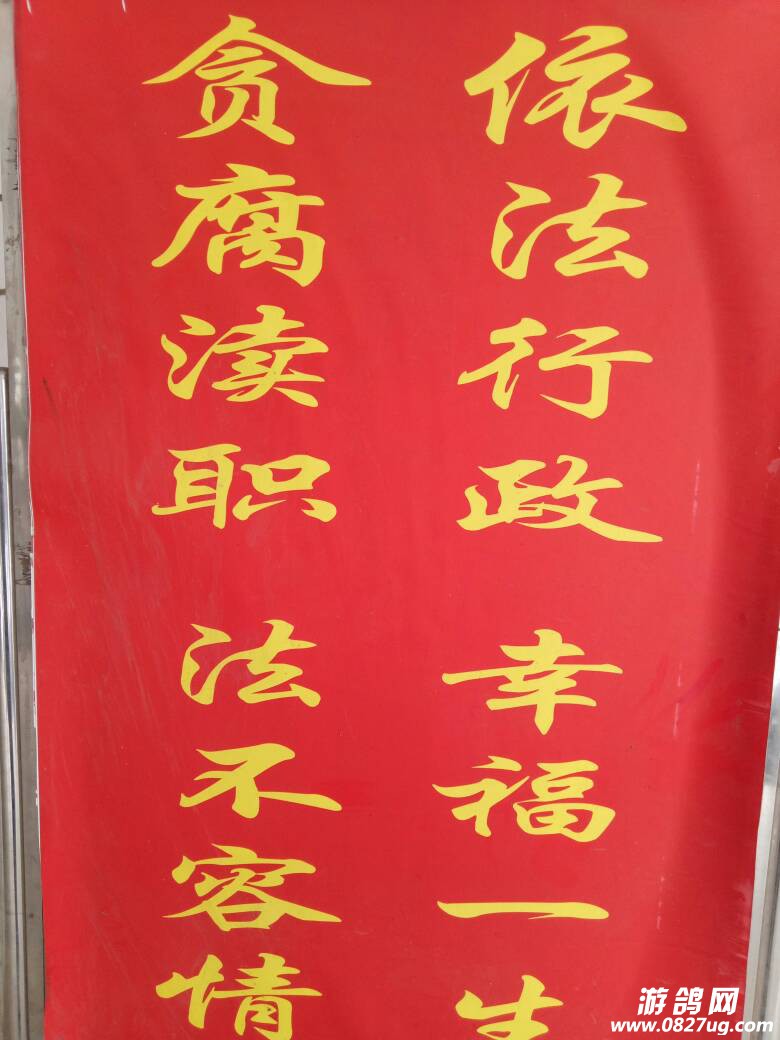 依法行政 幸福一生
贪腐渎职 法不容情
游鸽网
www.0827ug.com